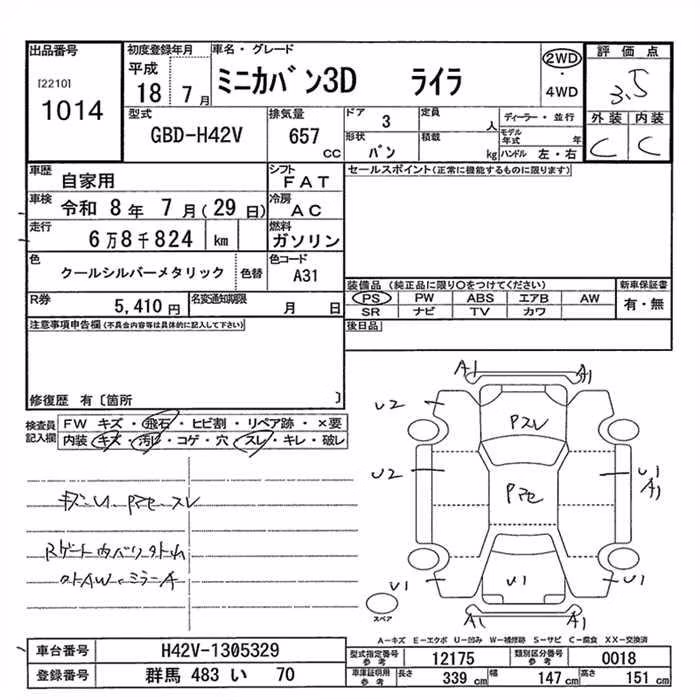 出品番号
[2210]
1014
初度登録年月
平成
18 7月
車名・グレード
ミニカバン3D ライラ
2WD
・
4WD
評価点
3.5
外装 内装
C C
型式
GBD-H42V
排気量
657
cc
ドア
3
定員
人
形状
バン
積載
kg
ディーラー・並行
モデル年式 年
ハンドル 左・右
車歴
自家用
シフト
FAT
車検
令和 8年 7月(29日)
冷房
AC
走行
6万8千824 km
燃料
ガソリン
色
クールシルバーメタリック
色替
色コード
A31
R券
5,410円
名変通知期限
月 日
セールスポイント(正常に機能するものに限ります)
装備品(純正品に限り○をつけてください)
新車保証書
PS PW ABS エアB AW
SR ナビ TV カワ
有・無
後日品
注意事項申告欄(不具合内容等は具体的に記入して下さい)
修復歴 有〔箇所 〕
検査員記入欄
FW キズ・飛石・ヒビ割・リペア跡・×要
内装 キズ・汚レ・コゲ・穴・スレ・キレ・破レ
キズ
Rゲート内バリ
社外AW ミラーA
A1 A1
U2
Pスレ
U2
Pマセ
U1
A1
U1
U1
U1
A1 A1
スペア
A-キズ E-エクボ U-凹み W-補修跡 S-サビ C-腐食 XX-交換済
車台番号
H42V-1305329
登録番号
群馬 483 い 70
型式指定番号 参考
12175
類別区分番号 参考
0018
車庫証明用 参考
長さ 339 cm
幅 147 cm
高さ 151 cm